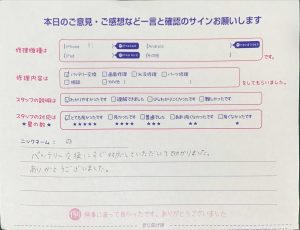 本日のご意見・ご感想など一言と確認のサインお願いします
修理機種は
iPhone
Android
iPad
その他
です。
修理内容は
バッテリー交換 画面修理 水没修理 パーツ修理
相談 その他
をしてもらいました。
スタッフの説明は
わかりやすかったです 理解できました 少しわかりにくかったです 難しかったです
スタッフの対応は
★星の数★
とても良かったです 良かったです 普通でした あまり良くなかったです 良くなかったです
★★★★★ ★★★★ ★★★ ★★ ★
ニックネーム: の
バッテリー交換にすぐ対応していただいて助かりました。
ありがとうございました。
検事に直って良かったです。ありがとうございました
切り取り線